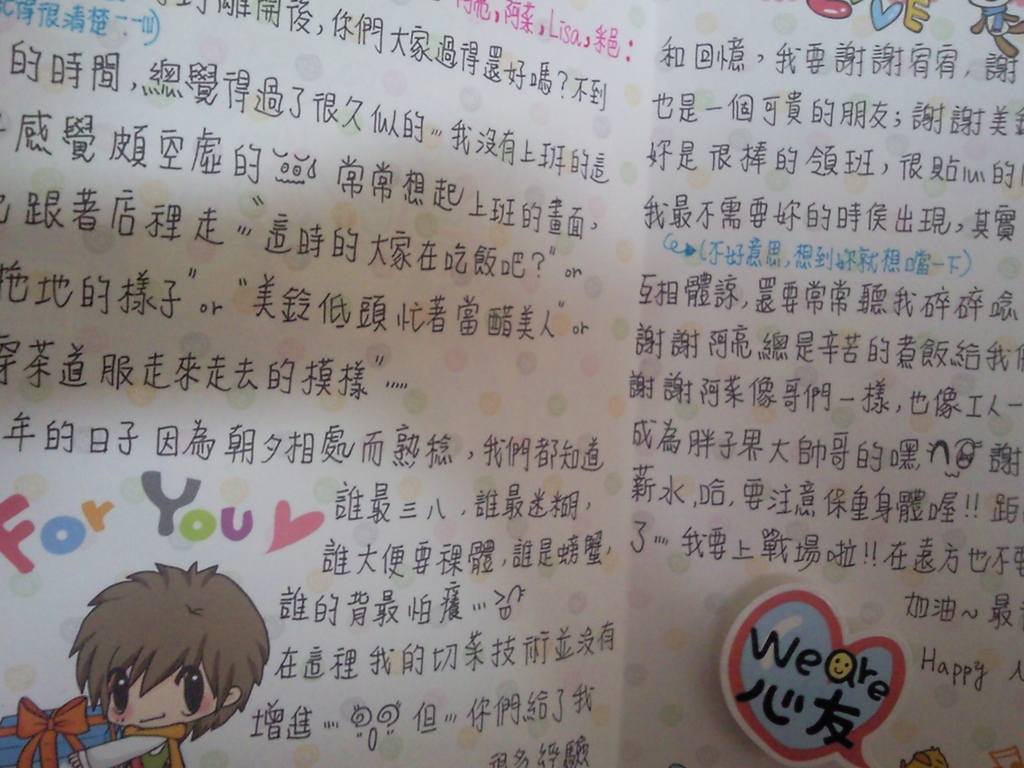 記得很清楚
離開後,你們大家過得還好嗎?不到
阿亮,阿菜,Lisa,彩色:
的時間,總覺得過了很久似的…我沒有上班的這
感覺頗空虛的 常常想起上班的畫面,
跟著店裡走…"這時的大家在吃飯吧?"or
拖地的樣子"or"美鈴低頭忙著當醋美人"or
穿茶道服走來走去的模樣"……
年的日子因為朝夕相處而熟稔,我們都知道
For You
誰最三八,誰最迷糊,
誰大便要裸體,誰是螃蟹,
誰的背最怕癢…
在這裡我的切菜技術並沒有
增進… 但…你們給了我
很多經驗
LOVE
和回憶,我要謝謝宥宥,謝
也是一個可貴的朋友;謝謝美鈴
妳是很棒的領班,很貼心的
我最不需要妳的時侯出現,其實
(不好意思,想到妳就想嗆一下)
互相體諒,還要常常聽我碎碎唸
謝謝阿亮總是辛苦的煮飯給我們
謝謝阿菜像哥們一樣,也像工人一
成為胖子界大帥哥的嘿 謝
薪水,哈,要注意保重身體喔!!距
了…我要上戰場啦!!在遠方也不要
加油~最
Happy
We are
心友